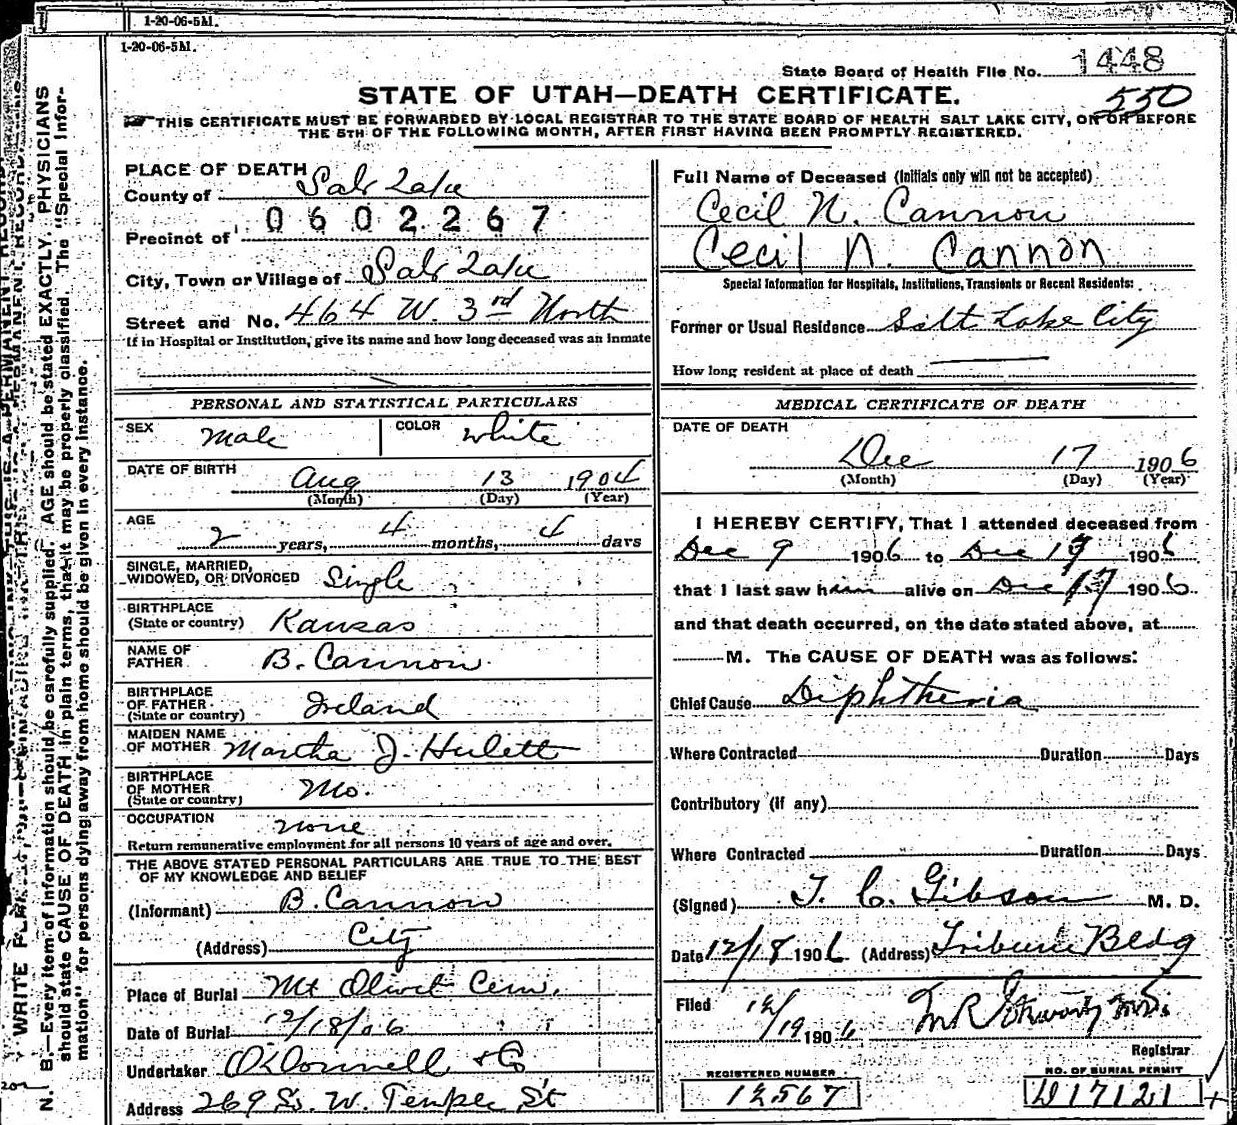 1-20-06-5M.
1-20-06-5M.
State Board of Health File No. 1448
STATE OF UTAH—DEATH CERTIFICATE.
550
THIS CERTIFICATE MUST BE FORWARDED BY LOCAL REGISTRAR TO THE STATE BOARD OF HEALTH SALT LAKE CITY, ON OR BEFORE
THE 5TH OF THE FOLLOWING MONTH, AFTER FIRST HAVING BEEN PROMPTLY REGISTERED.
PLACE OF DEATH
County of Salt Lake
0602267
Precinct of
City, Town or Village of Salt Lake
Street and No. 464 W. 3rd North
If in Hospital or Institution, give its name and how long deceased was an inmate
PERSONAL AND STATISTICAL PARTICULARS
SEX Male COLOR White
DATE OF BIRTH Aug 13 1904
(Month) (Day) (Year)
AGE 2 years, 4 months, 4 days
SINGLE, MARRIED,
WIDOWED, OR DIVORCED Single
BIRTHPLACE
(State or country) Kansas
NAME OF
FATHER B. Cannon
BIRTHPLACE
OF FATHER
(State or country) Ireland
MAIDEN NAME
OF MOTHER Martha J. Hulett
BIRTHPLACE
OF MOTHER
(State or country) Mo.
OCCUPATION none
Return remunerative employment for all persons 10 years of age and over.
THE ABOVE STATED PERSONAL PARTICULARS ARE TRUE TO THE BEST
OF MY KNOWLEDGE AND BELIEF
(Informant) B. Cannon
(Address) City
Place of Burial Mt Olivet Cem.
Date of Burial 12/18/06
Undertaker O'Donnell & Co
Address 269 So. W. Temple St
Full Name of Deceased (Initials only will not be accepted)
Cecil N. Cannon
Cecil N. Cannon
Special Information for Hospitals, Institutions, Transients or Recent Residents:
Former or Usual Residence Salt Lake City
How long resident at place of death
MEDICAL CERTIFICATE OF DEATH
DATE OF DEATH
Dec 17 1906
(Month) (Day) (Year)
I HEREBY CERTIFY, That I attended deceased from
Dec 9 1906 to Dec 17 1906
that I last saw him alive on Dec 17 1906
and that death occurred, on the date stated above, at
M. The CAUSE OF DEATH was as follows:
Chief Cause Diphtheria
Where Contracted Duration Days
Contributory (if any)
Where Contracted Duration Days
(Signed) T. C. Gibson M. D.
Date 12/18 1906 (Address) Tribune Bldg
Filed 12/19 1906
Registrar
REGISTERED NUMBER
12567
NO. OF BURIAL PERMIT
D17121
N. B.—Every item of information should be carefully supplied. AGE should be stated EXACTLY. PHYSICIANS
should state CAUSE OF DEATH in plain terms, that it may be properly classified. The "Special Infor-
mation" for persons dying away from home should be given in every instance.